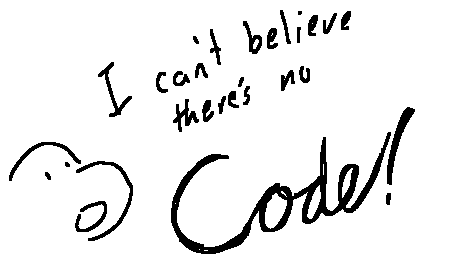 I can't believe
there's no
Code!